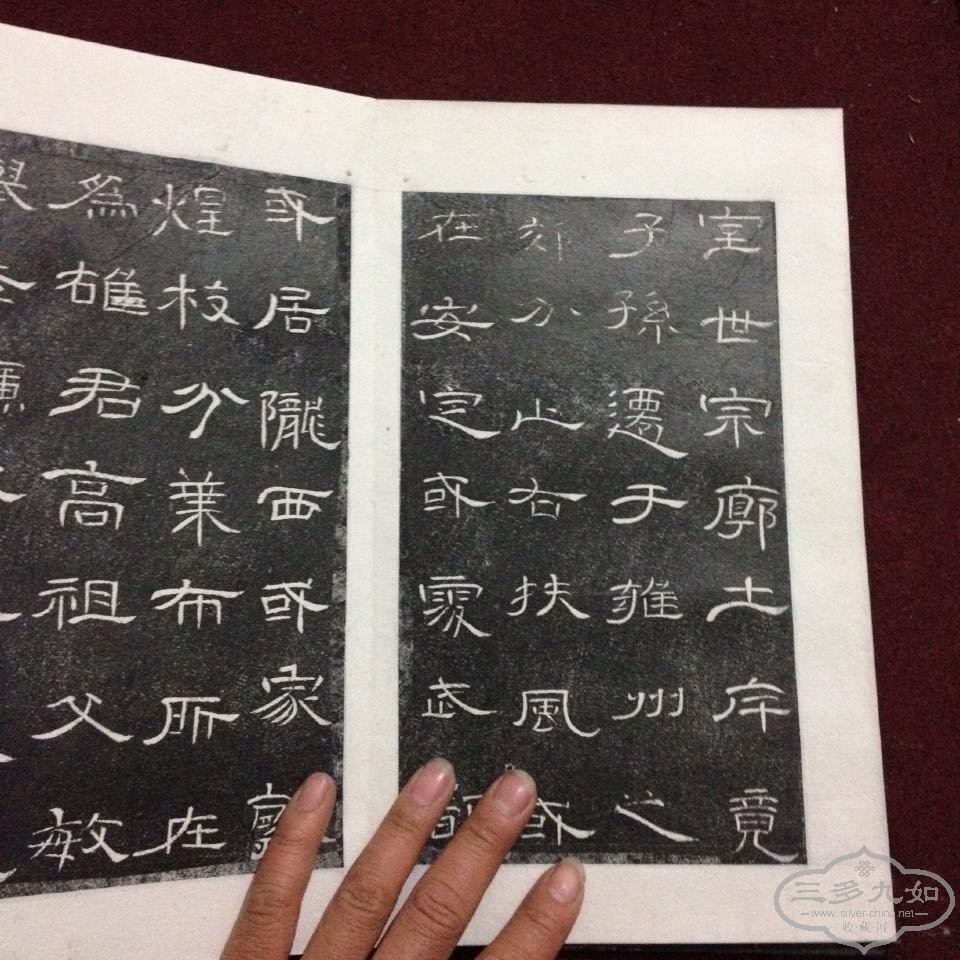 室世宗廓土斥竟
子孫遷于雍州之
郊分止右扶風或
在安定或處武都
或居隴西或家敦
煌枝分葉布所在
為雄君高祖父敏
三多九如
www.silver-china.net
收藏网